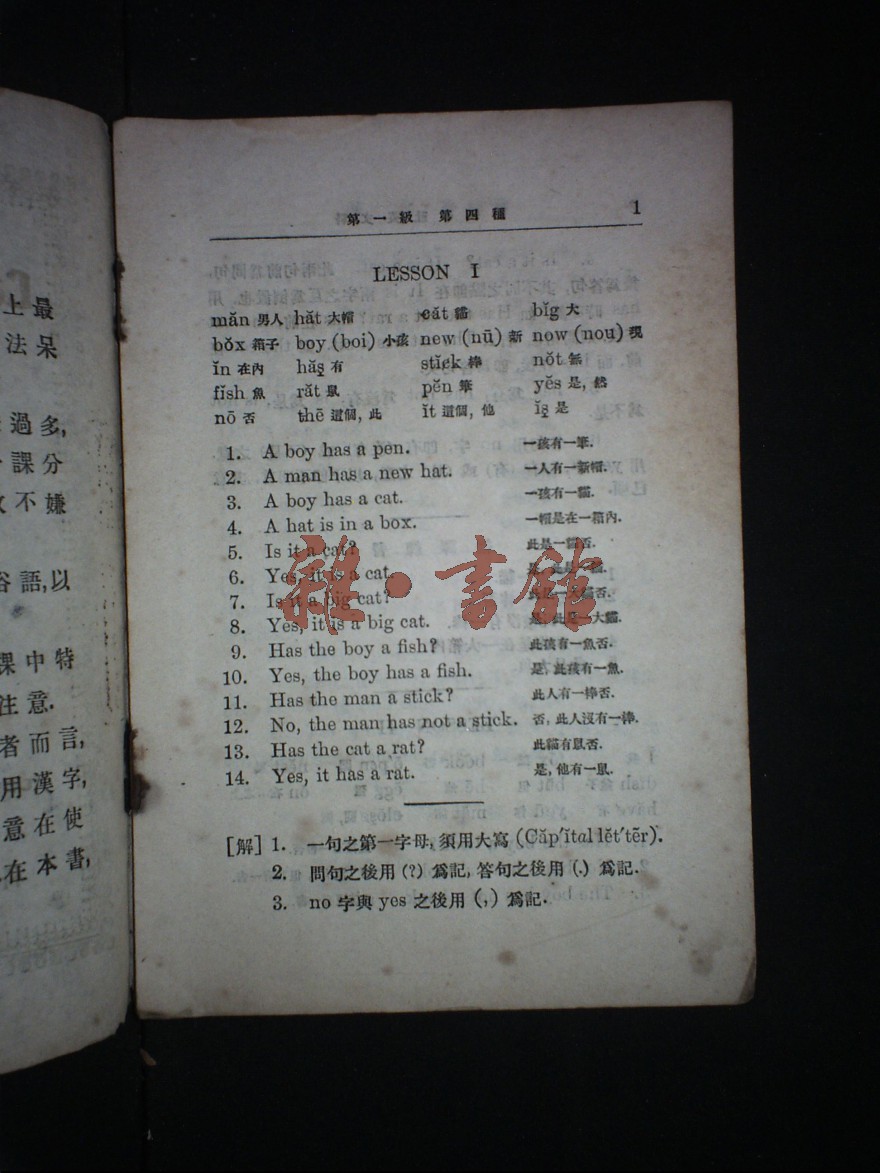 上最
法呆
過多,
課分
不嫌
俗語,以
課中特
注意.
者而言,
用漢字,
意在使
在本書,
第一級 第四種 1
LESSON I
măn 男人 hăt 大帽 căt 貓 bĭg 大
bŏx 箱子 boy (boi) 小孩 new (nū) 新 now (nou) 現
ĭn 在內 hăs̱ 有 stĭck 棒 nŏt 無
fĭsh 魚 răt 鼠 pĕn 筆 yĕs 是, 然
nō 否 thē 這個, 此 ĭt 這個, 他 ĭs̱ 是
1. A boy has a pen. 一孩有一筆.
2. A man has a new hat. 一人有一新帽.
3. A boy has a cat. 一孩有一貓.
4. A hat is in a box. 一帽是在一箱內.
5. Is it a cat? 此是一貓否.
6. Yes, it is a cat. 是,
7. Is it a big cat? 此是一大貓否.
8. Yes, it is a big cat. 是, 此是一大貓.
9. Has the boy a fish? 此孩有一魚否.
10. Yes, the boy has a fish. 是, 此孩有一魚.
11. Has the man a stick? 此人有一棒否.
12. No, the man has not a stick. 否, 此人沒有一棒.
13. Has the cat a rat? 此貓有鼠否.
14. Yes, it has a rat. 是, 他有一鼠.
雜·書館
[解] 1. 一句之第一字母, 須用大寫 (Căp′ĭtal lĕt′tẽr).
2. 問句之後用 (?) 爲記, 答句之後用 (.) 爲記.
3. no 字與 yes 之後用 (,) 爲記.